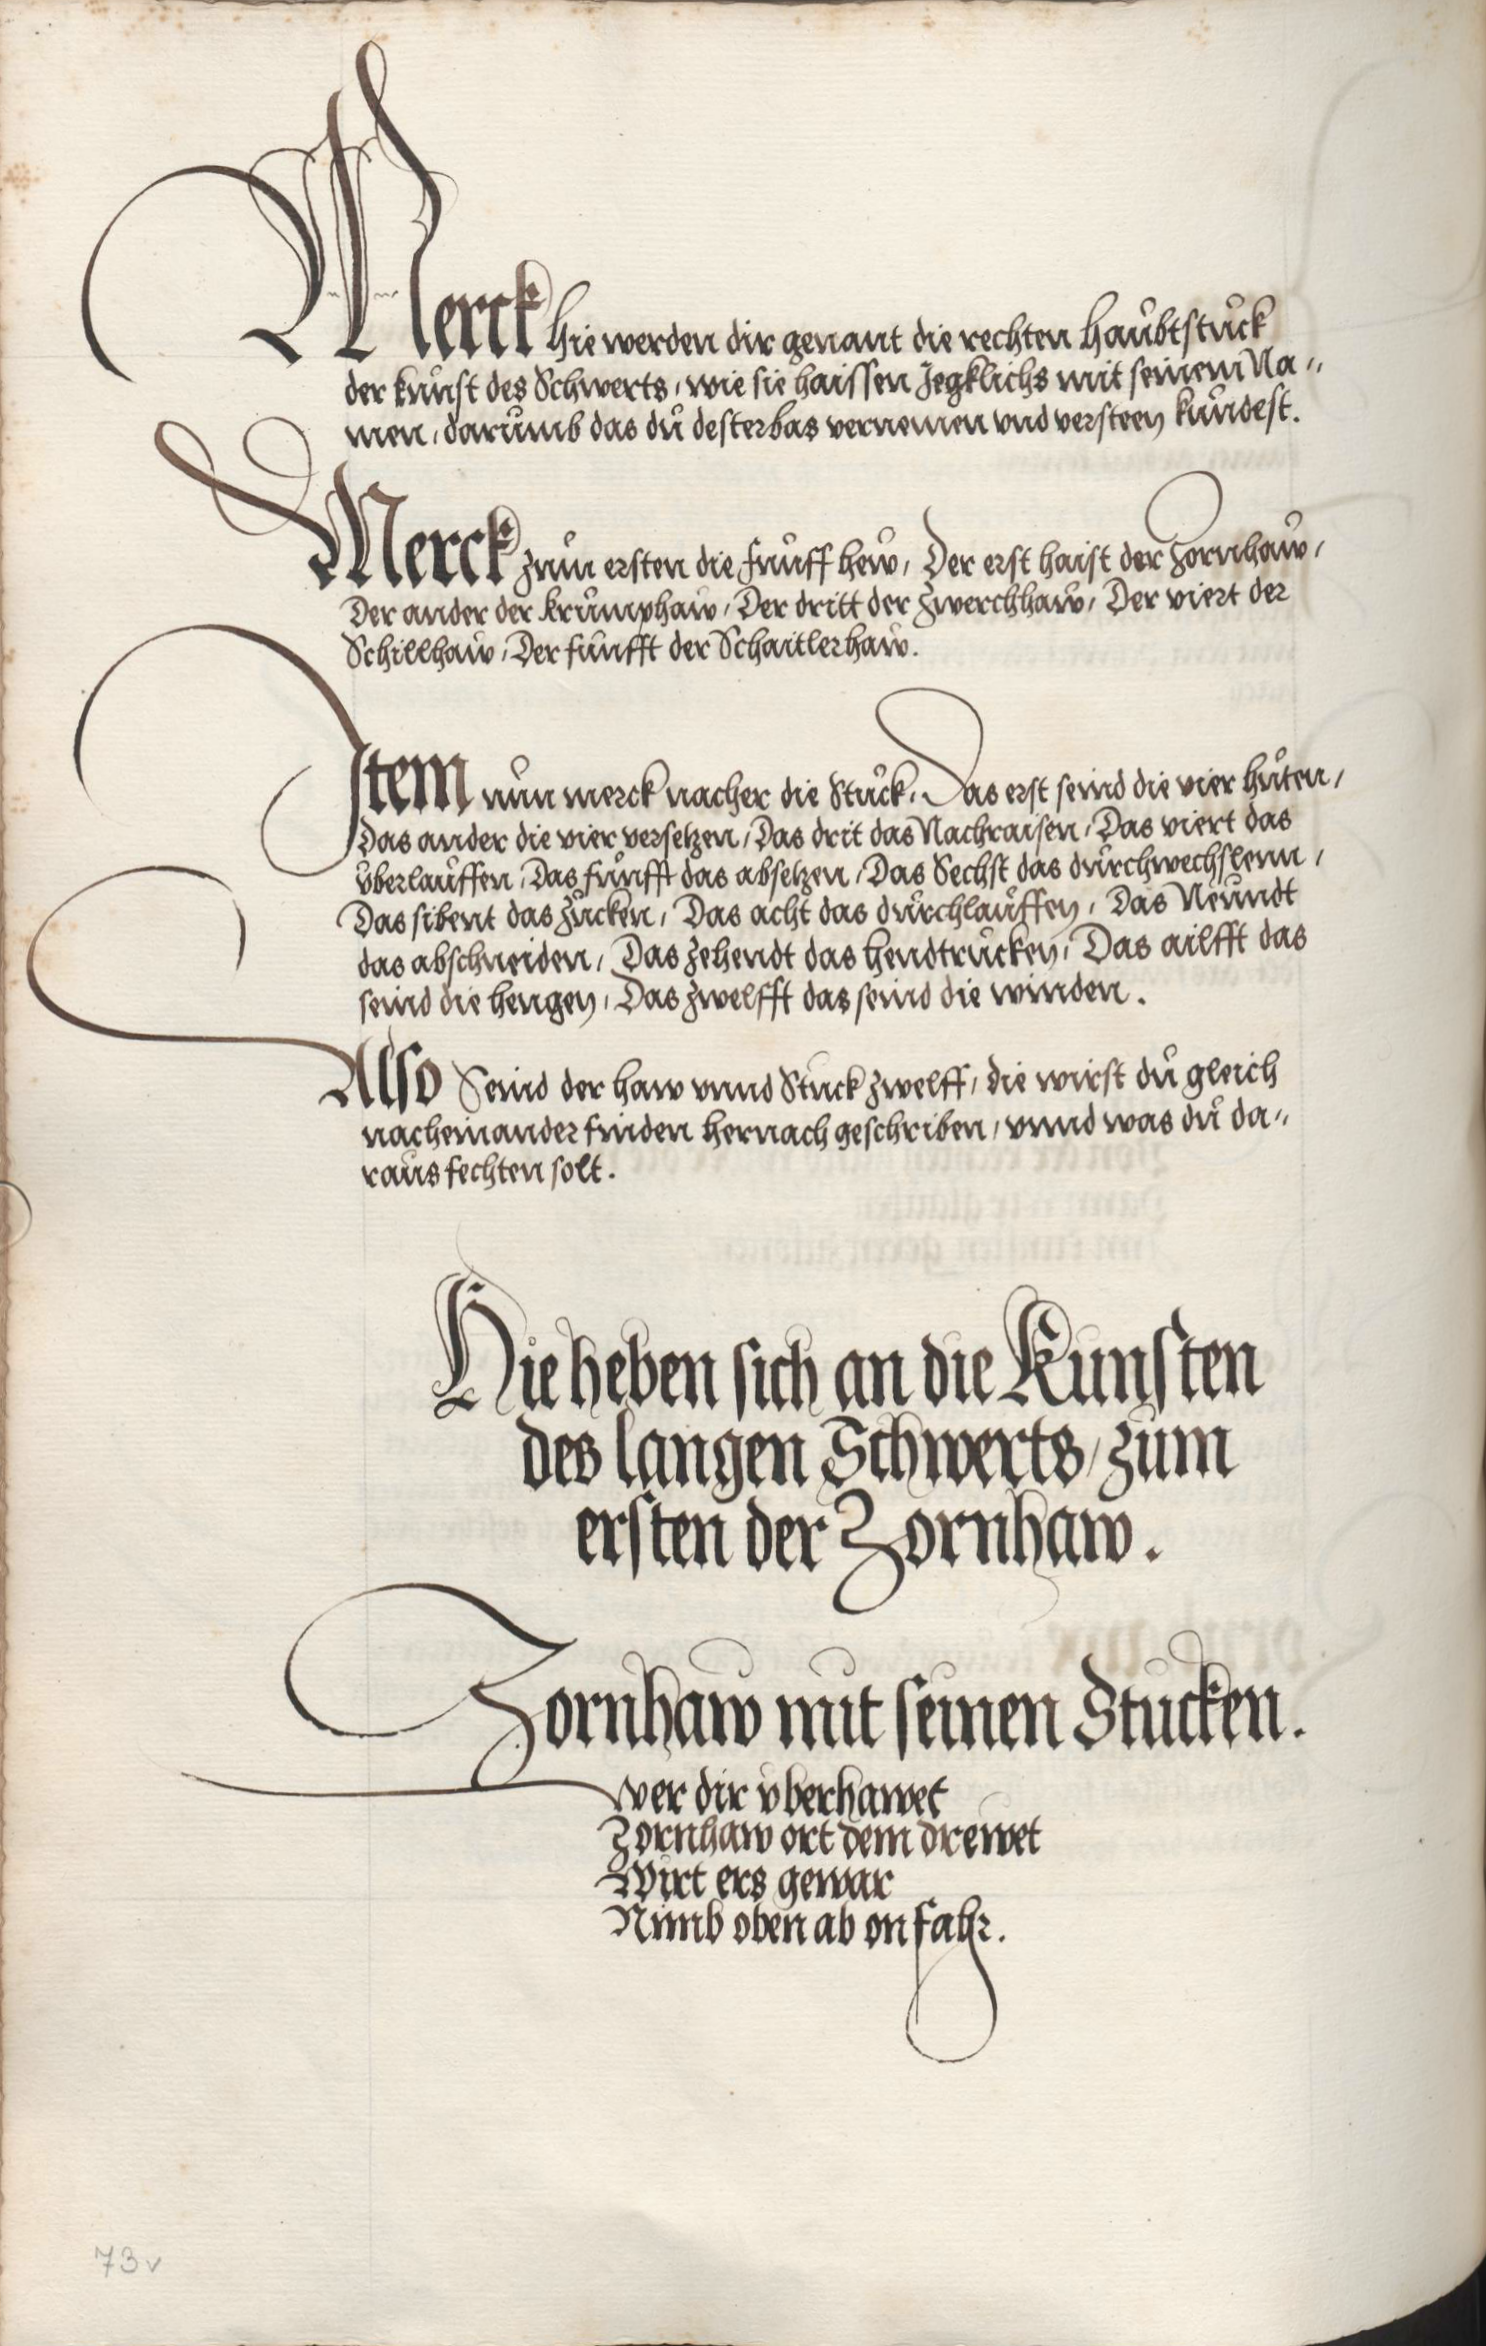 Merck hie werden dir genant die rechten haubtstuck
der kunst des Schwerts, wie sie haissen Jegklichs mit seinem Na„
men, darumb das du desterbas vernemen vnd versteen kundest.
Merck zum ersten die funff hew, Der erst haist der Zornhaw,
Der ander der krumphaw, Der dritt der Zwerchhaw, Der viert der
Schillhaw, Der funfft der Schaitlerhaw.
Item nun merck nacher die Stuck, Das erst seind die vier huten,
Das ander die vier versetzen, Das drit das Nachraisen, Das viert das
vberlauffen, Das funfft das absetzen, Das Sechst das durchwechslenn,
Das sibent das Zucken, Das acht das durchlauffen, Das Neundt
das abschneiden, Das Zehendt das hendtrucken, Das ailfft das
seind die hengen, Das Zwelfft das seind die winden.
Also Seind der haw vnnd Stuck zwelff, die wirst du gleich
nacheinander finden hernach geschriben, vnnd was du da„
raus fechten solt.
Hie heben sich an die Kunsten
des langen Schwerts, zum
ersten der Zornhaw.
Zornhaw mit seinen Stucken.
Wer dir vberhawet
Zornhaw ort dem drewet
Wirt ers gewar
Nimb oben ab on fahr.
73v